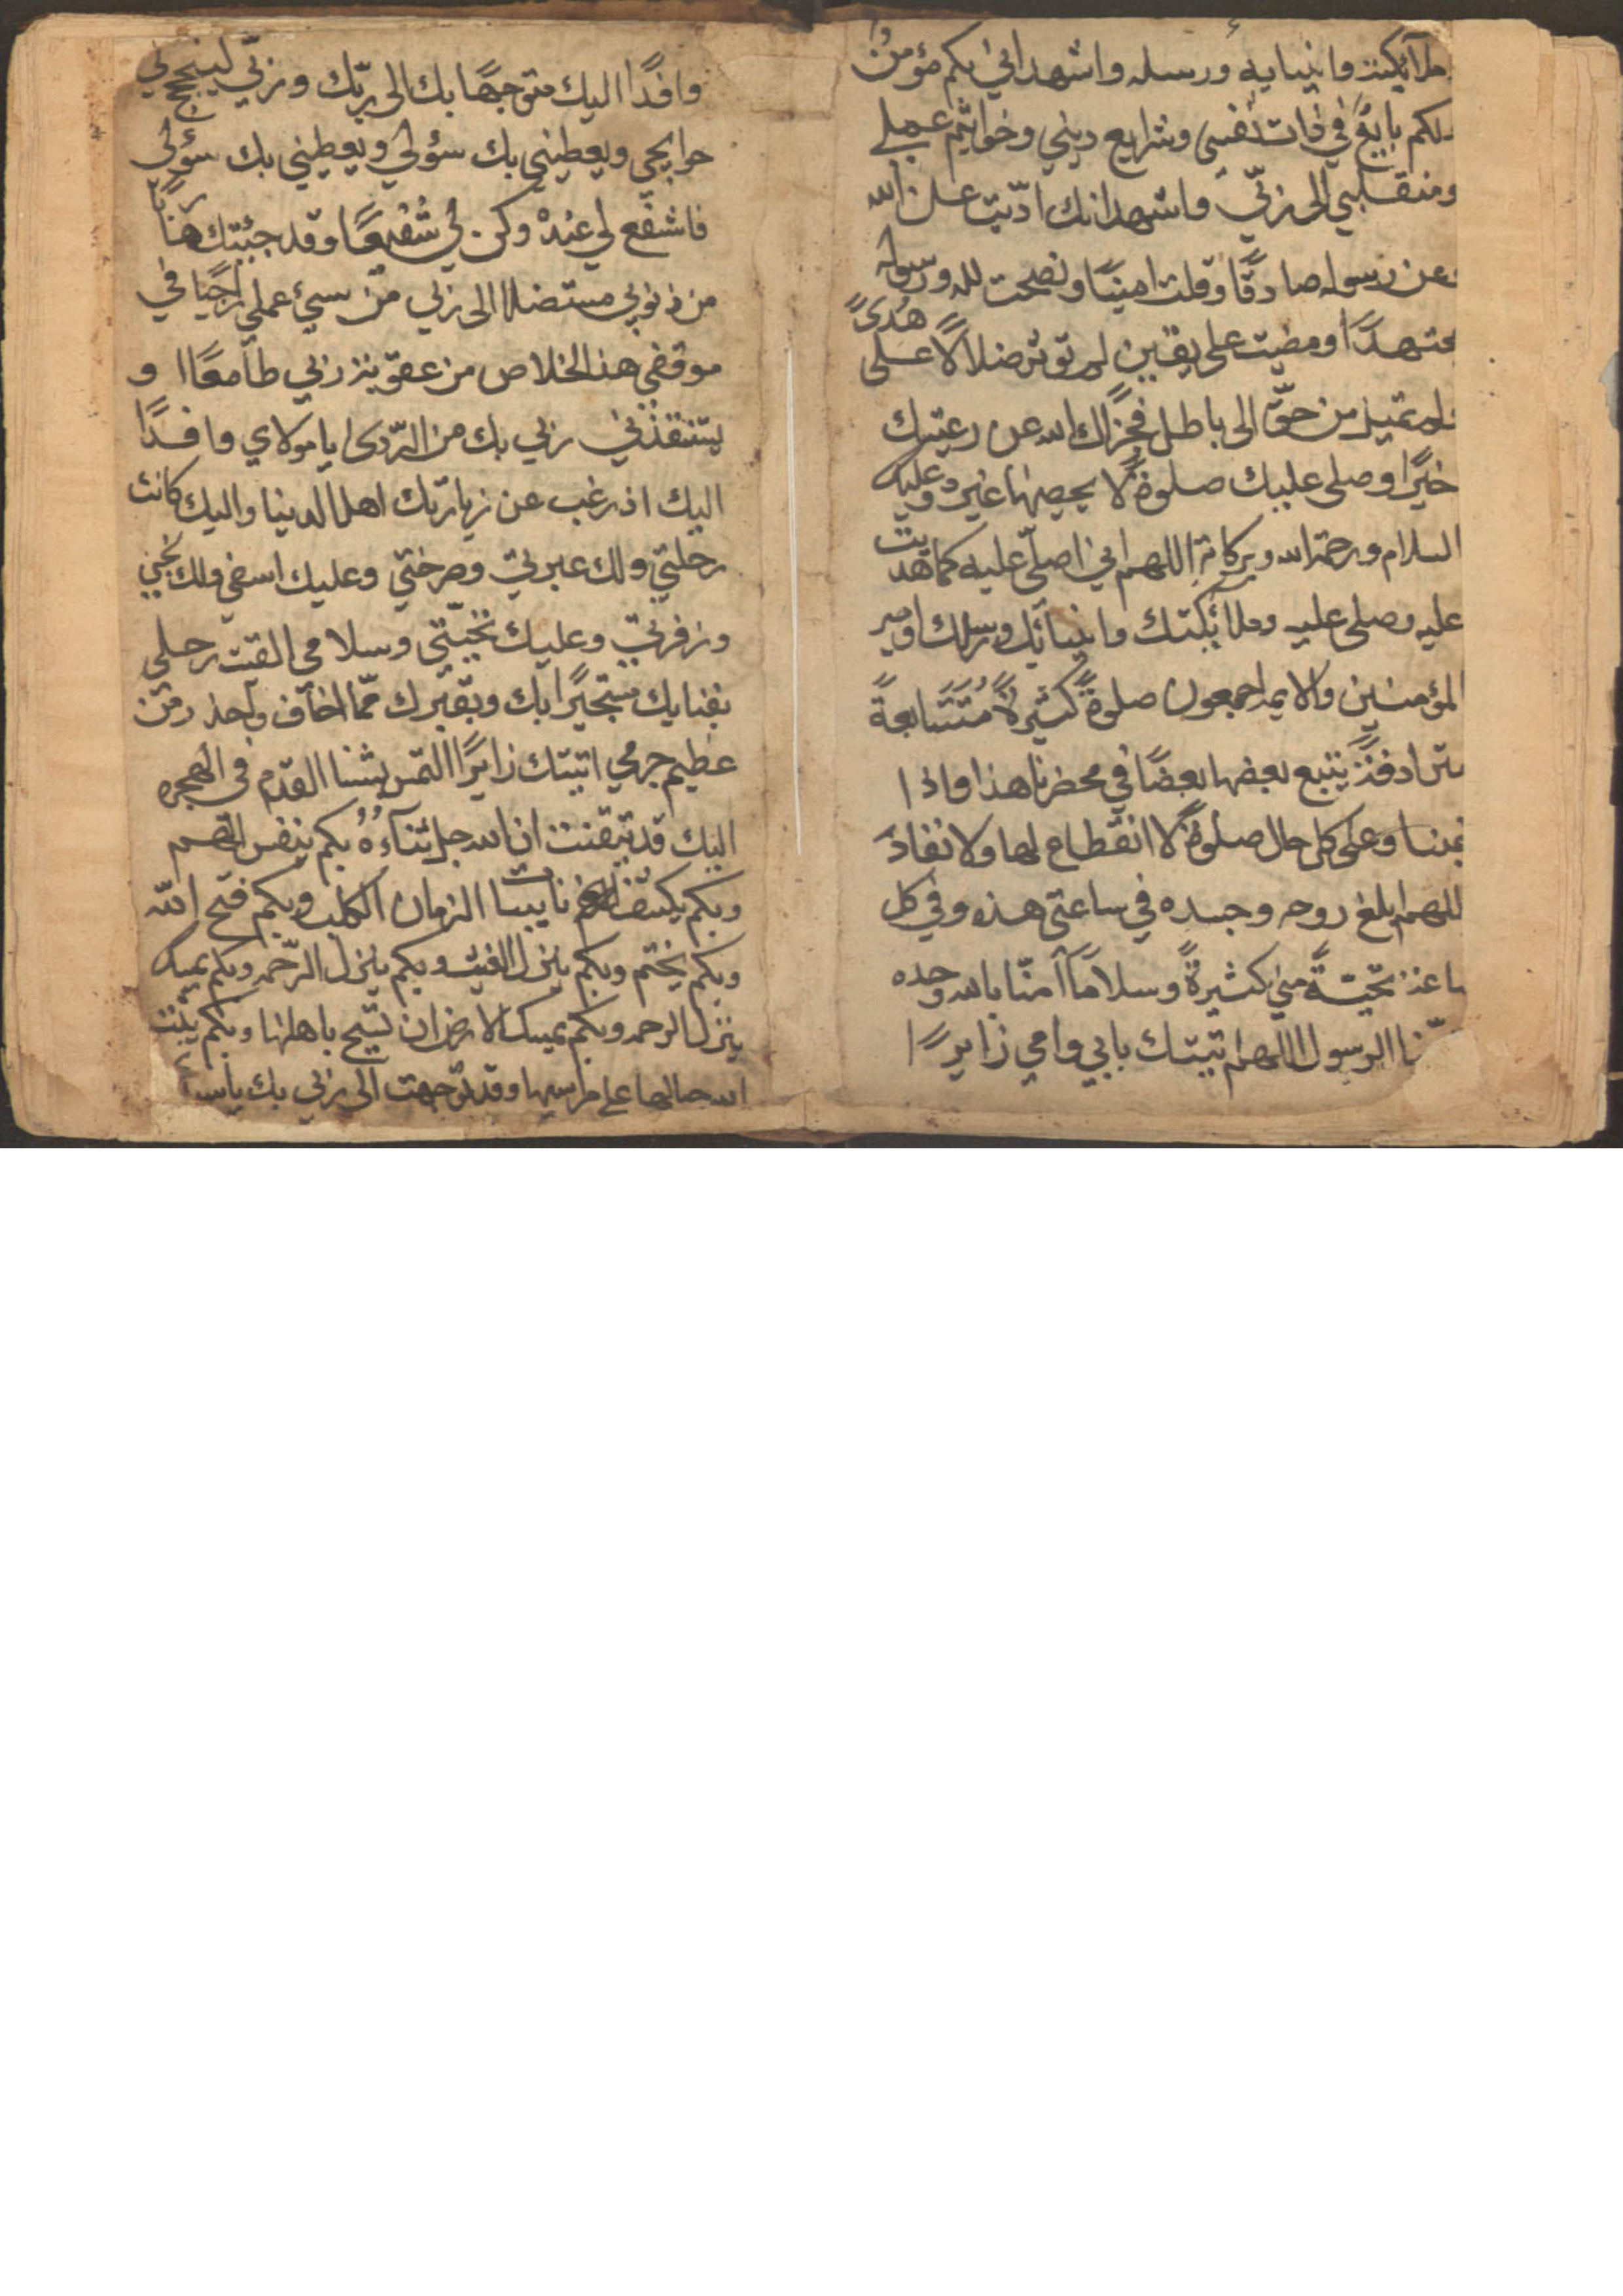 ملآئكته وانبيايه ورسله واشهد اني بكم مؤمن
لكم بايع في ذات نفسي وشرايع ديني وخواتيم عملي
ومنقلبي الى ربّي واشهد انك ادّيت عن الله
عن رسوله صادقًا وقلت امينًا ونصحت لله ورسوله
مجتهدًا ومضيت على يقين لم تؤثر ضلالًا على هُدىً
ولم تميل من حقّ الى باطل فجزاك الله عن رعيتك
خيرًا وصلى عليك صلوةً لا يحصيها غيره وعليه
السلام ورحمة الله وبركاته اللهم اني اصلّي عليه كما هديت
عليه وصلى عليه وملائكتك وانبيائك ورسلك وامير
المؤمنين والايمه اجمعون صلوةً كثيرةً مُتَتَابعةً
مترادفةً يتبع بعضها بعضًا في محضرنا هذا واذا
غبنا وعلى كل حال صلوةً لا انقطاع لها ولا نفادَ
اللهم ابلغ روحه وجسده في ساعتي هذه وفي كل
ساعة تحيّةً مني كثيرةً وسلامًا آمنّا بالله وحده
الرسول اللهم اتيتك بابي وامي زايرًا
وافدًا اليك متوجهًا بك الى ربّك وربّي لينجح لي
حوايجي ويعطيني بك سؤلي ويعطيني بك سؤلي
فاشفع لي عنده وكن لي شُفيعًا وقد جئيتك هاربًا
من ذنوبي مستضلا الى ربي من سيئ عملي راجيًا في
موقفي هذا الخلاص من عقوبة ربي طامعًا و
يستنقذني ربي بك من الرّدى يا مولاي وافدًا
اليك اذ رغب عن زيارتك اهل الدنيا واليك كانت
رحلتي ولك عبرتي وصرختي وعليك اسفي ولك نحيبي
وزفرتي وعليك تحيّتي وسلامي القيت رحلي
بفنايك مستجيرًا بك وبقبرك ممّا اخاف واحذر من
عظيم جرمي اتيتك زايرًا التمس بثنا القدم في الهجره
اليك قد تيقنت ان الله جل ثناءوُهُ بكم ينفس الهم
وبكم يكشف نايبا الزمان الكلب وبكم فتح الله
وبكم يختم وبكم ينزل الغيث وبكم ينزل الرّحمه وبكم يمسك
ينزل الرحمه وبكم يمسك الارض ان تسيح باهلها وبكم يثبت
الله جبالها على مراسيها وقد توجهت الى ربي بك يا سيد